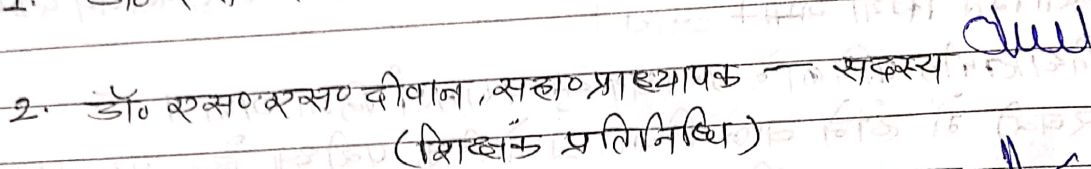 2. डॉ० एस० एस० दीवान, सहा० प्राध्यापक – सदस्य
(शिक्षक प्रतिनिधि)